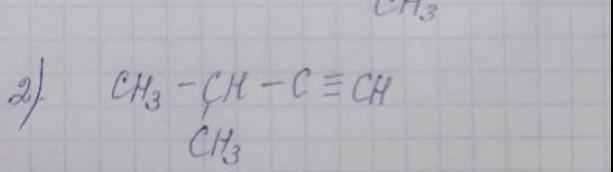 CH₃
2) CH₃ - CH - C ≡ CH
CH₃